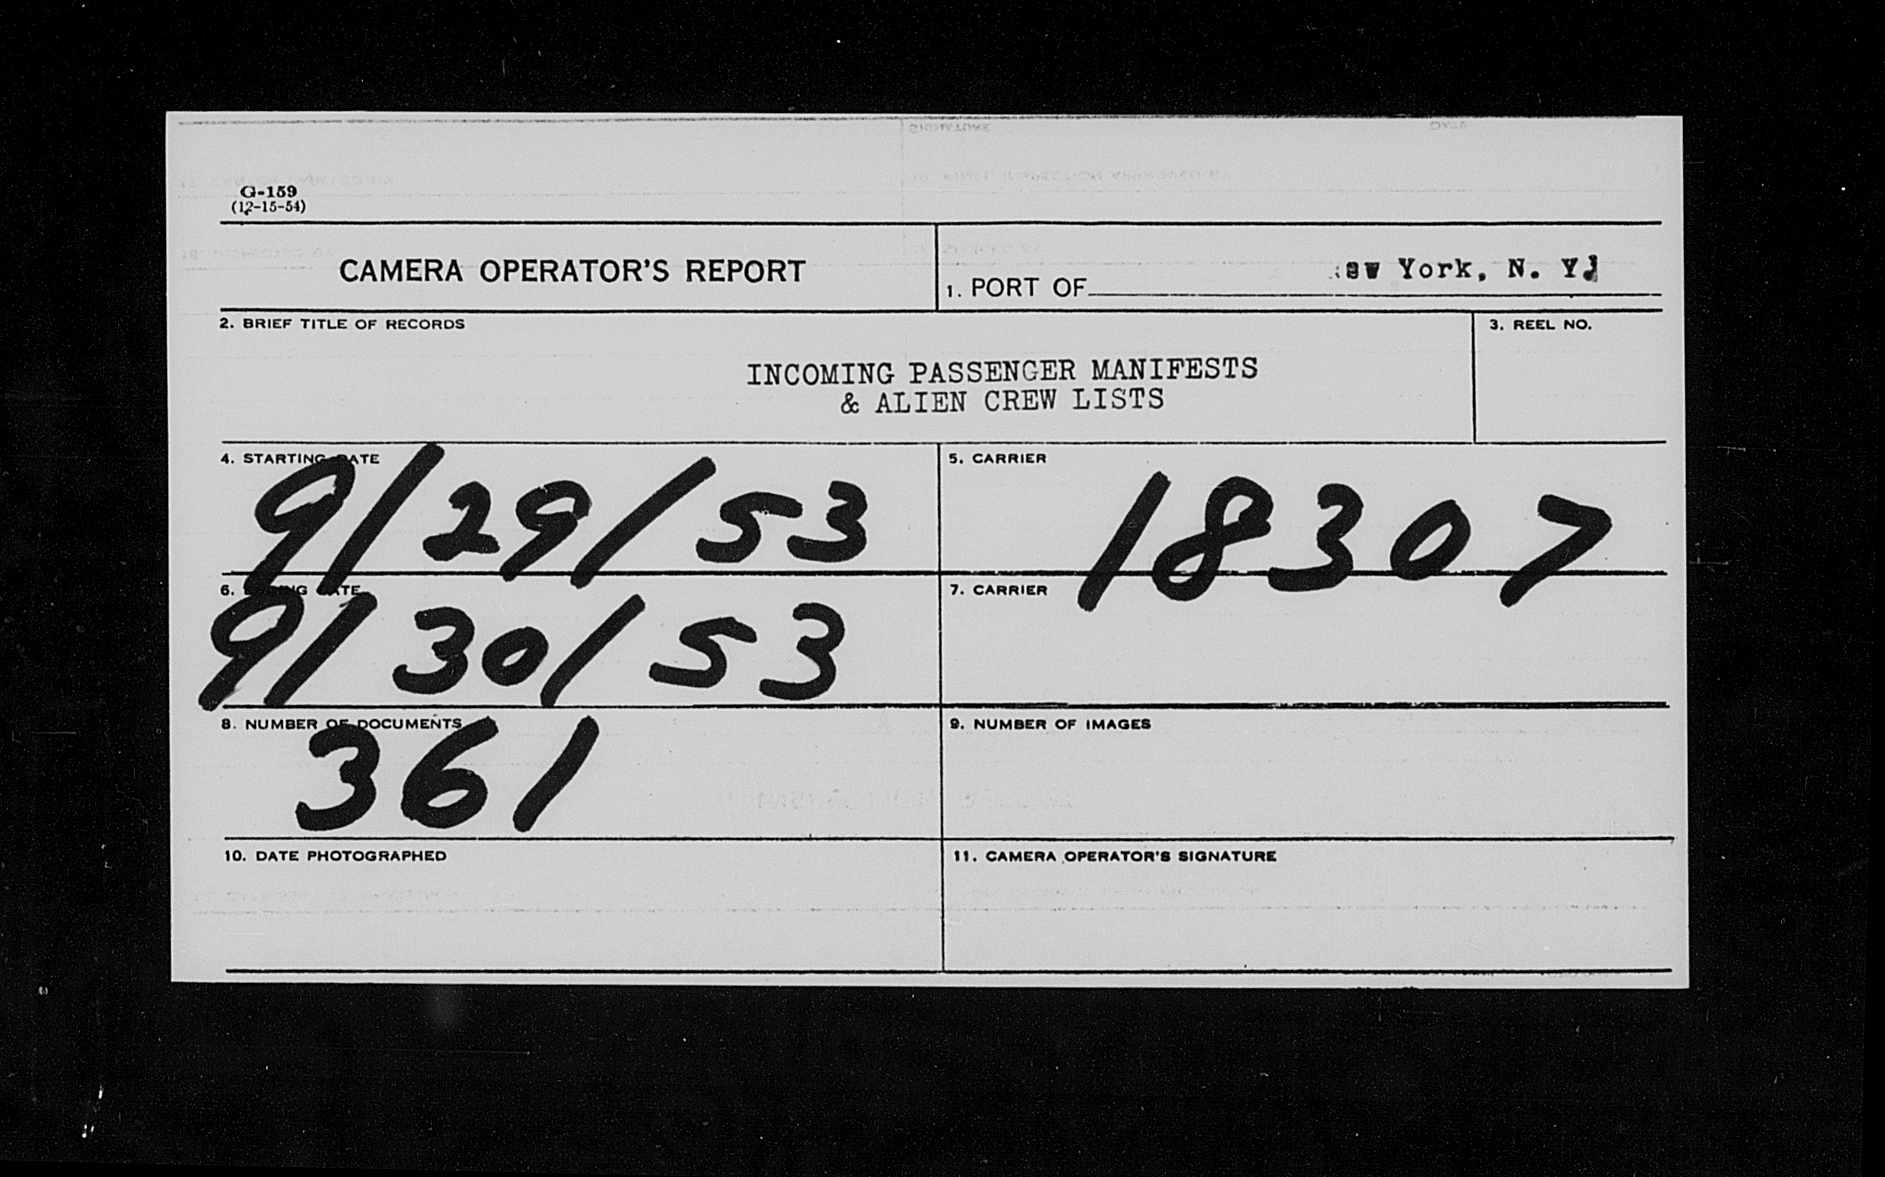 G-159
(12-15-54)
CAMERA OPERATOR'S REPORT
1. PORT OF York, N. Y.
2. BRIEF TITLE OF RECORDS
3. REEL NO.
INCOMING PASSENGER MANIFESTS
& ALIEN CREW LISTS
4. STARTING DATE
9/29/53
5. CARRIER
18307
6. DATE
9/30/53
7. CARRIER
8. NUMBER OF DOCUMENTS
361
9. NUMBER OF IMAGES
10. DATE PHOTOGRAPHED
11. CAMERA OPERATOR'S SIGNATURE